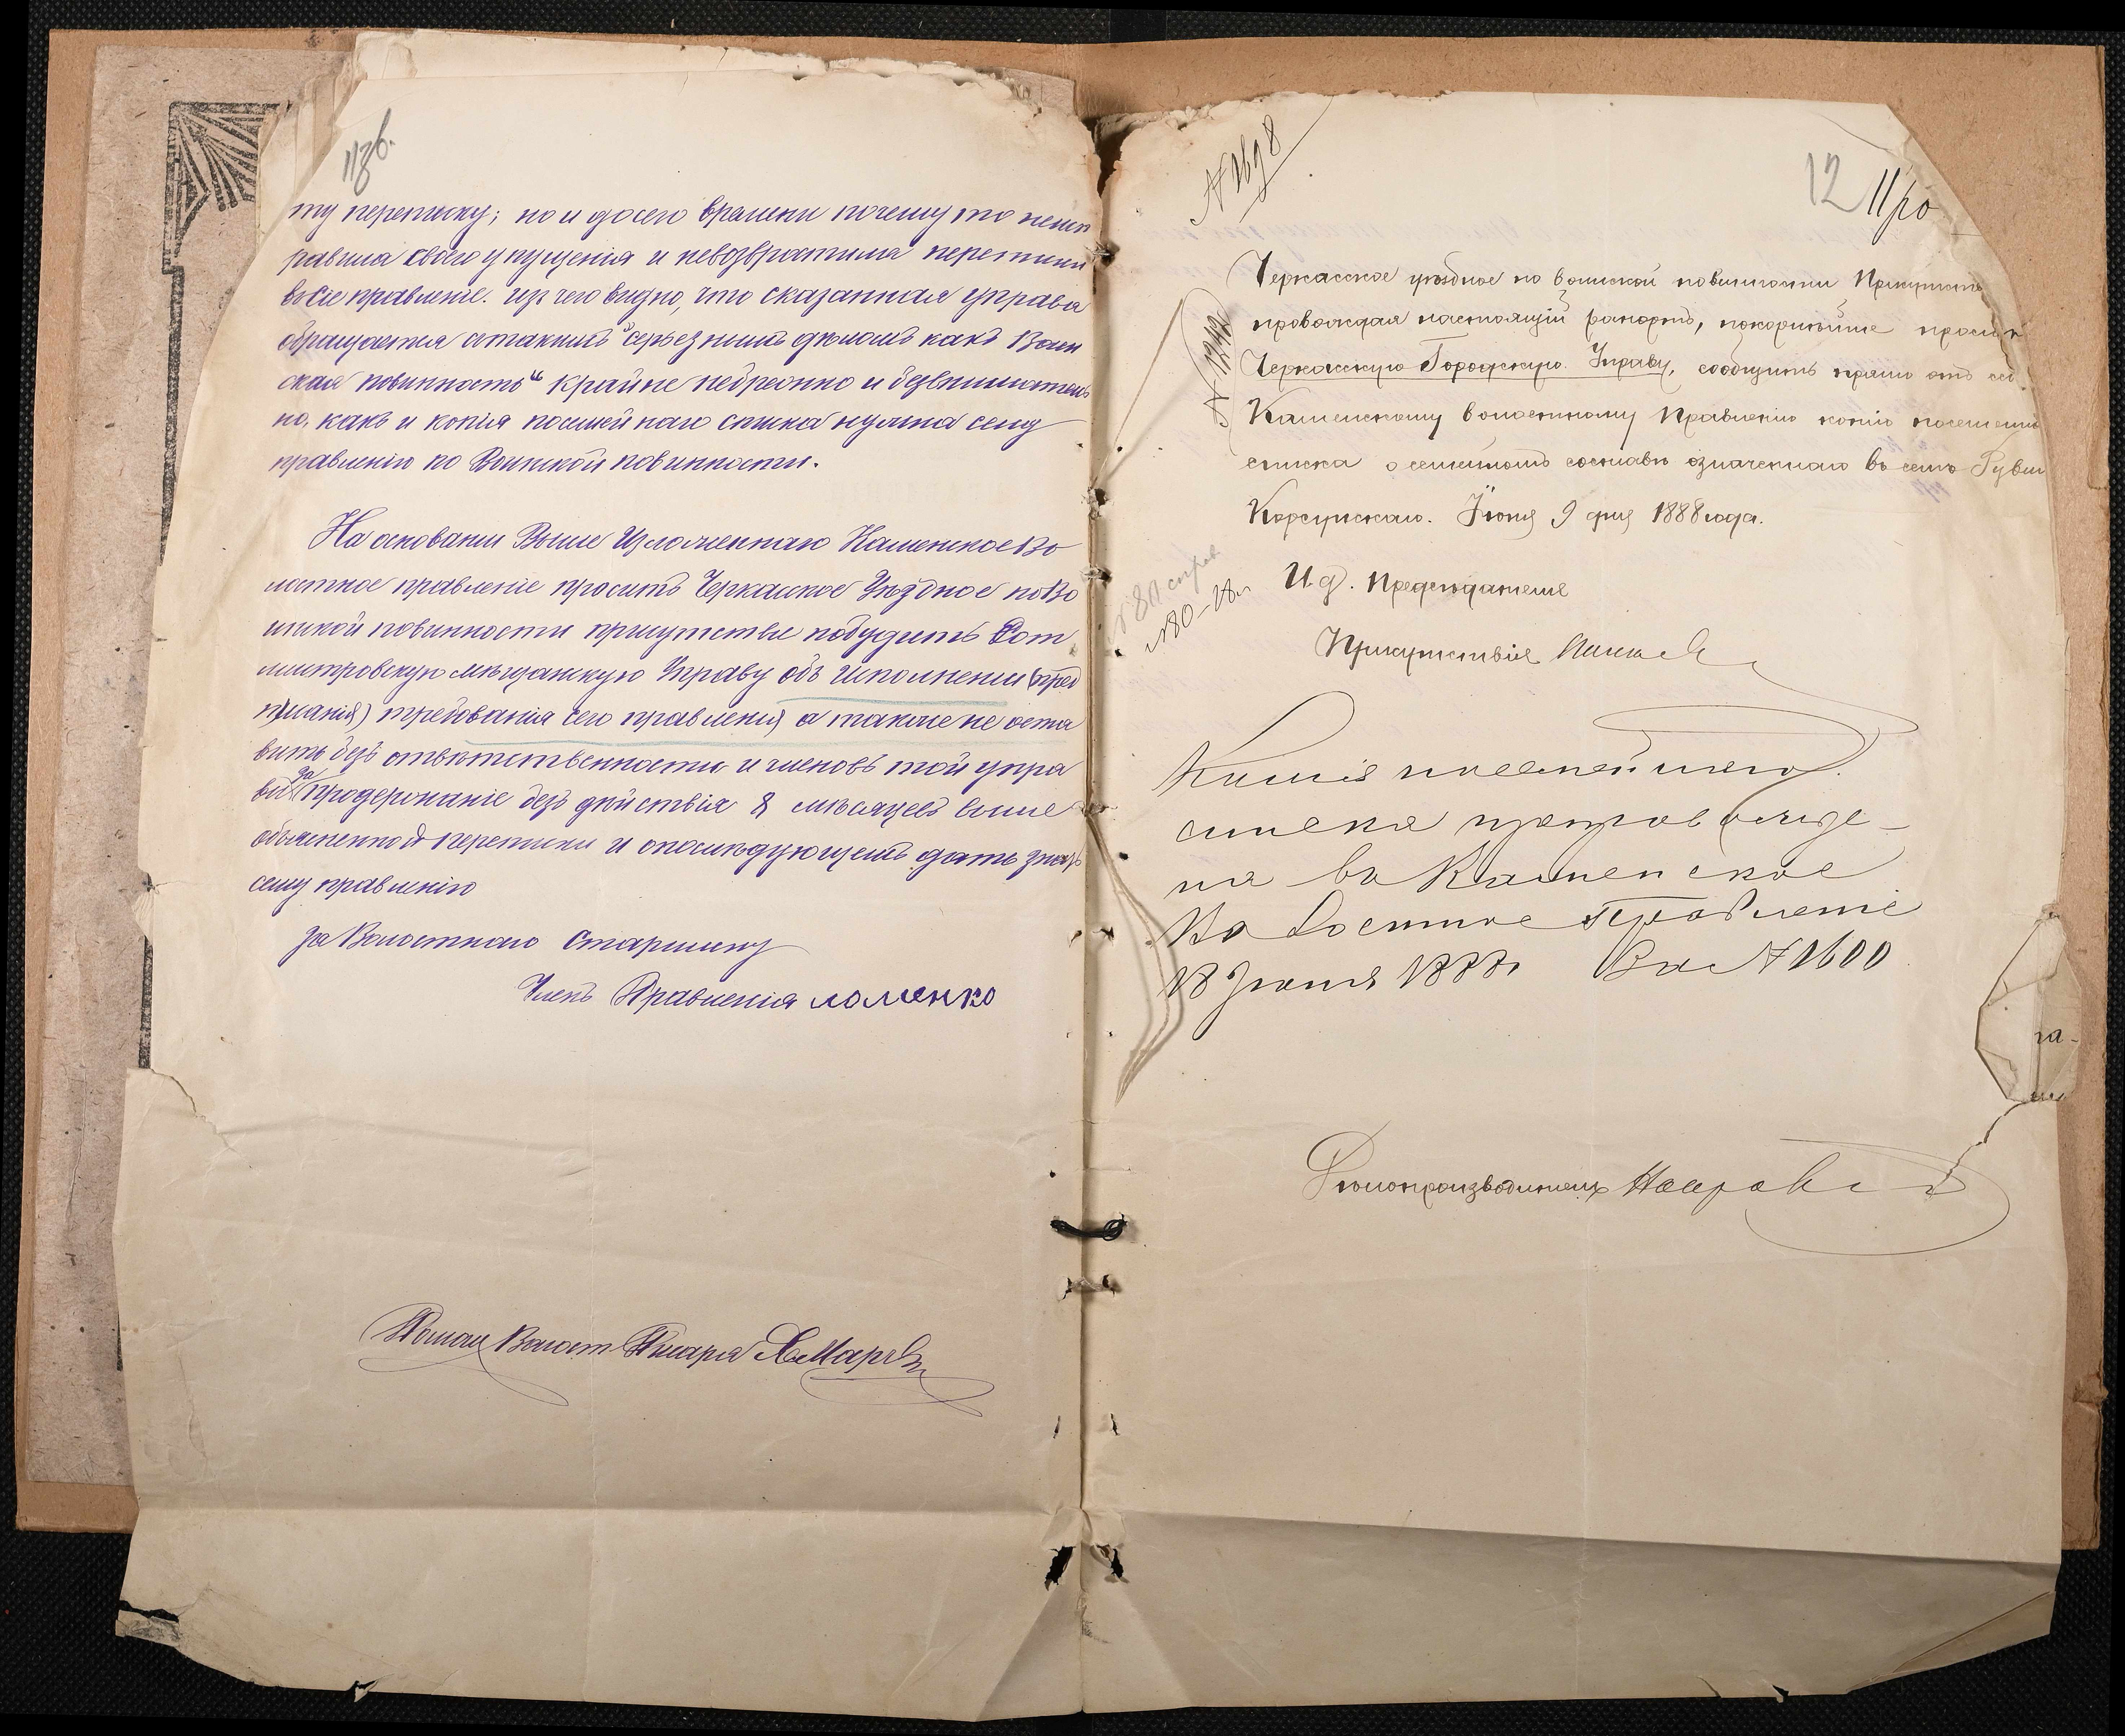 11об.
ту переписку; но и досего времени почему то неисп
равила своего упущенія и невозвратила переписки
въ Сіе правленіе. изъ чего видно, что сказанная управа
обращается стакимъ "серьезнымъ дѣломъ какъ Воин
ская повинность" крайне небрежно и безвнимательно
но. какъ и копія посемейнаго списка нужна сему
правленію по Воинской повинности.
На основаніи Выше Изложеннаго Каменское Во
лостное правленіе проситъ Черкасское Уѣздное по Во
инской повинности присутствіе побудить
мѣщанскую Управу объ исполненіи (пред
писанія) требованія сего правленія а также не оста
вить безъ отвѣтственности и членовъ той упра
вы за продержаніе безъ дѣйствія 8 мѣсяцевъ выше
объясненной переписки и опослѣдующемъ дать знать
сему правленію
За Волостнаго Старшину
Членъ Правленія ломенко
Волост Писаря
N 1698
12 11
N 1242
Черкасское уѣздное по воинской повинности Присутств
провождая настоящій рапортъ, покорнѣйше проситъ
Черкасскую Городскую Управу, сообщить прямо отъ себ
Каменскому волостному Правленію копію посемейн
списка о семейномъ составѣ означеннаго въ семъ Рувин
Корсунскаго. Іюня 9 дня 1888 года.
И.д. Предсѣдателя
Присутствія
Копія посемейнаго
списка препровожде-
на въ Каменское
Волостное Правленіе
18 Іюня 1888 г. За N 1600
Дѣлопроизводитель